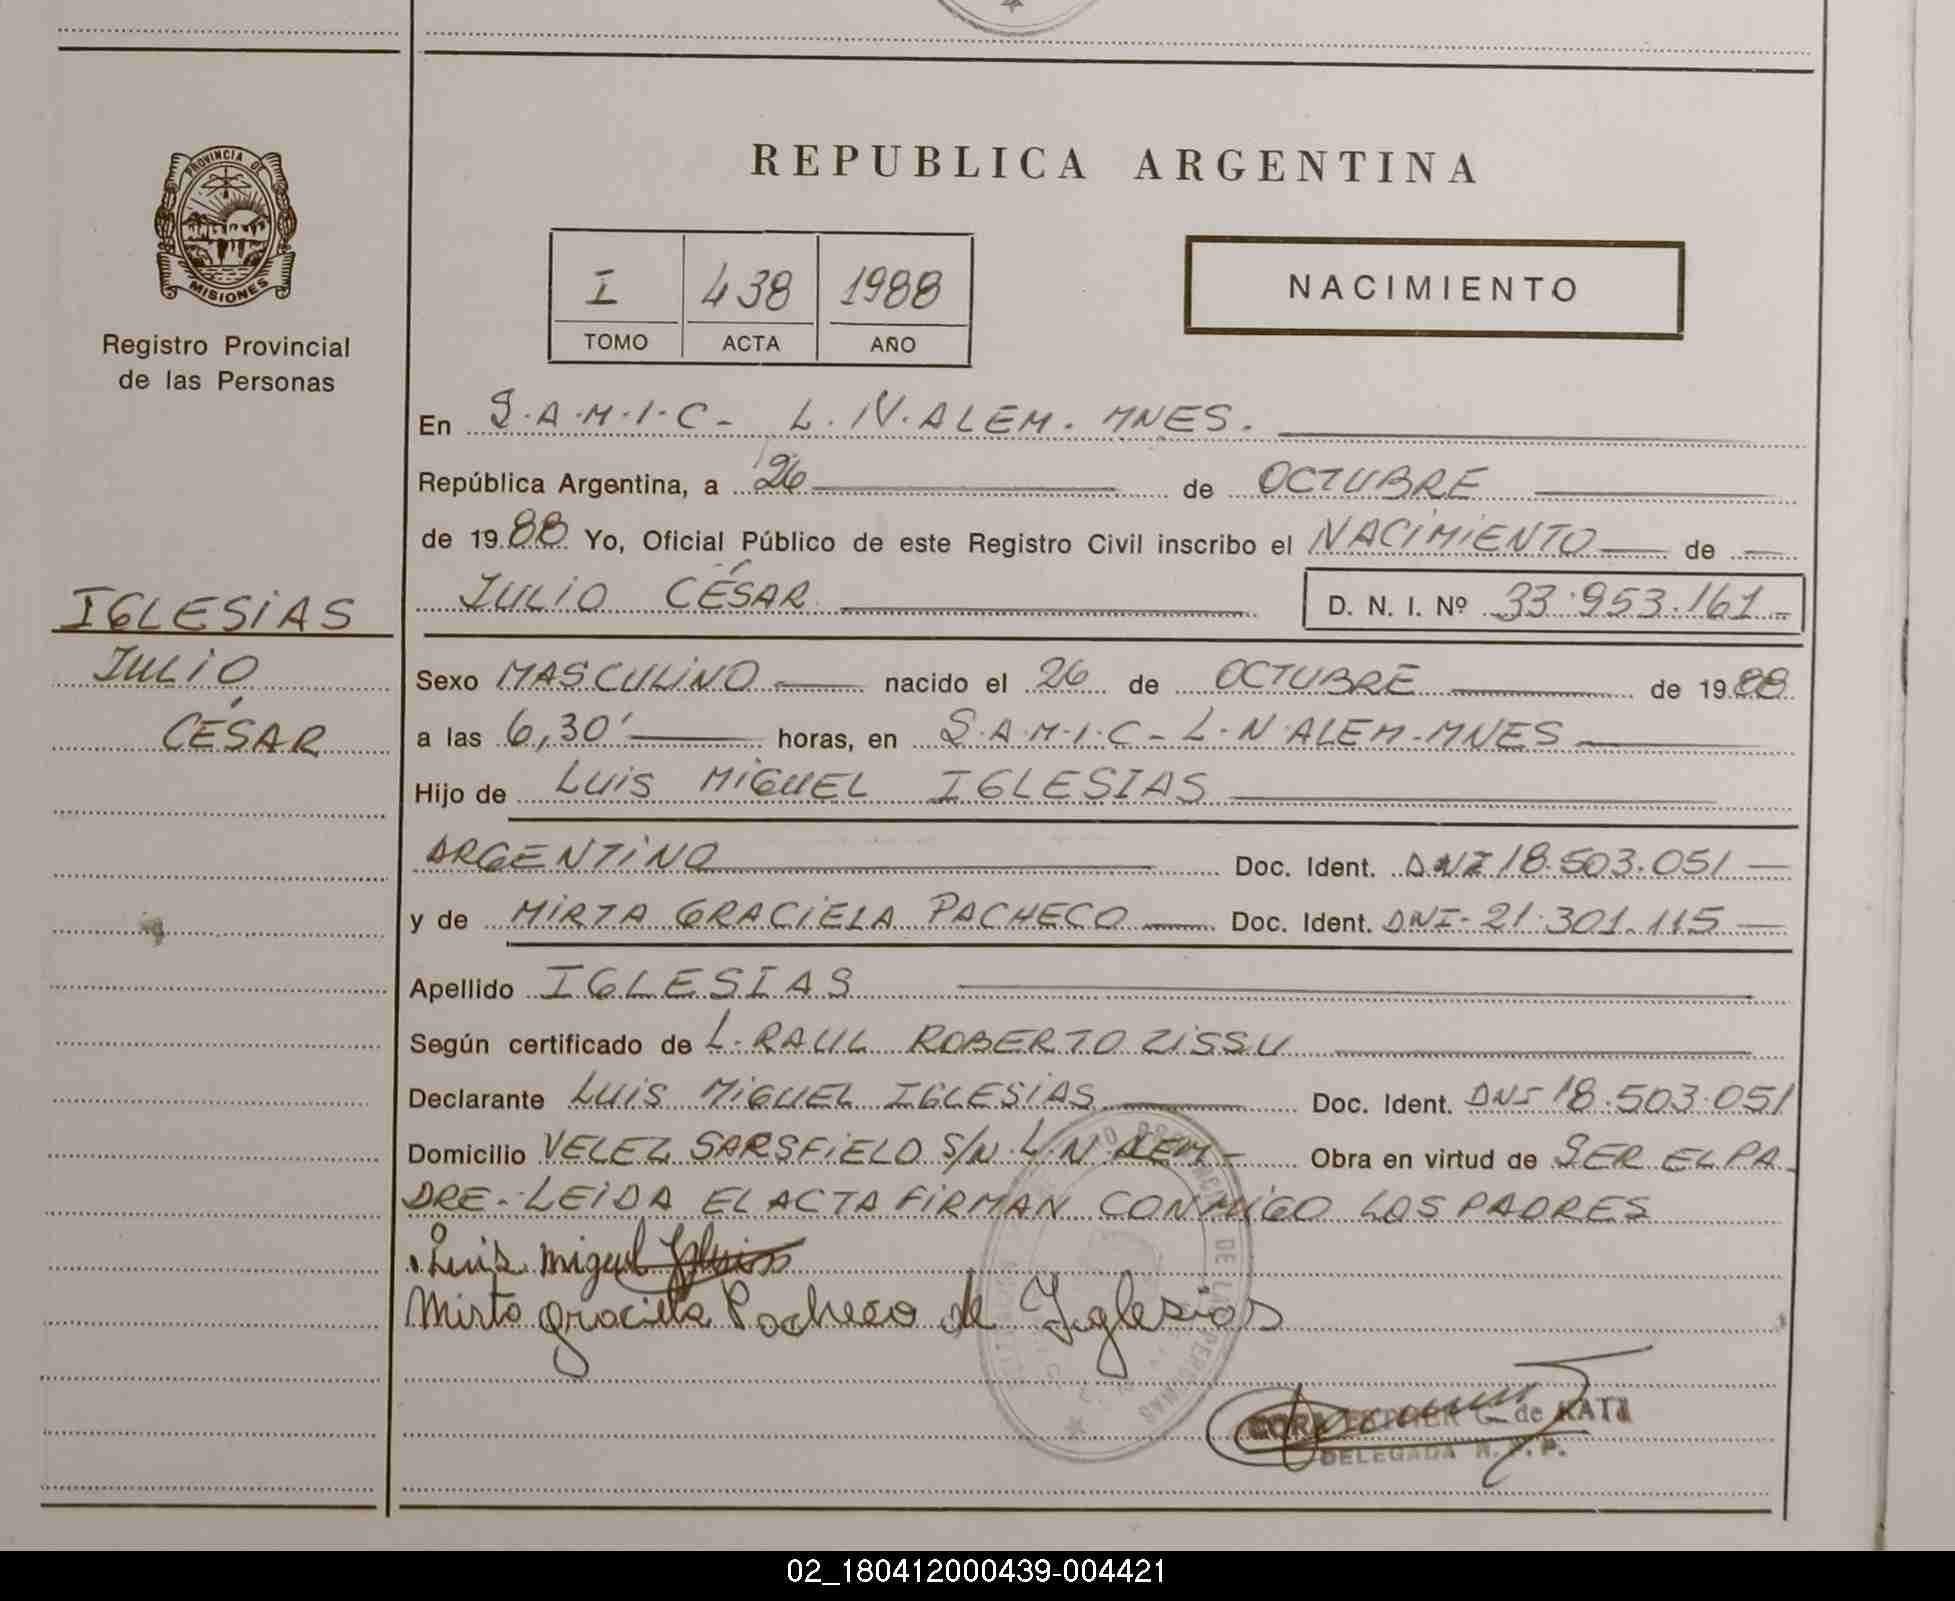 PROVINCIA DE
MISIONES
Registro Provincial
de las Personas
IGLESIAS
JULIO
CÉSAR
REPUBLICA ARGENTINA
I 438 1988
TOMO ACTA AÑO
NACIMIENTO
En S.A.M.I.C- L.N.ALEM. MNES.
República Argentina, a 26 de OCTUBRE
de 1988 Yo, Oficial Público de este Registro Civil inscribo el NACIMIENTO de
JULIO CÉSAR D. N. I. Nº 33.953.161
Sexo MASCULINO nacido el 26 de OCTUBRE de 1988
a las 6,30' horas, en S.A.M.I.C- L.N.ALEM-MNES
Hijo de LUIS MIGUEL IGLESIAS
ARGENTINO Doc. Ident. DNI 18.503.051
y de MIRTA GRACIELA PACHECO Doc. Ident. DNI- 21.301.115
Apellido IGLESIAS
Según certificado de L. RAUL ROBERTO ZISSU
Declarante LUIS MIGUEL IGLESIAS Doc. Ident. DNI 18.503.051
Domicilio VELEZ SARSFIELD S/N L.N.ALEM- Obra en virtud de SER EL PA
DRE.- LEIDA EL ACTA FIRMAN CONMIGO LOS PADRES
Luis Miguel Iglesias
Mirta Graciela Pacheco de Iglesias
ESTHER G. de KATZ
DELEGADA R. P. P.
02_180412000439-004421